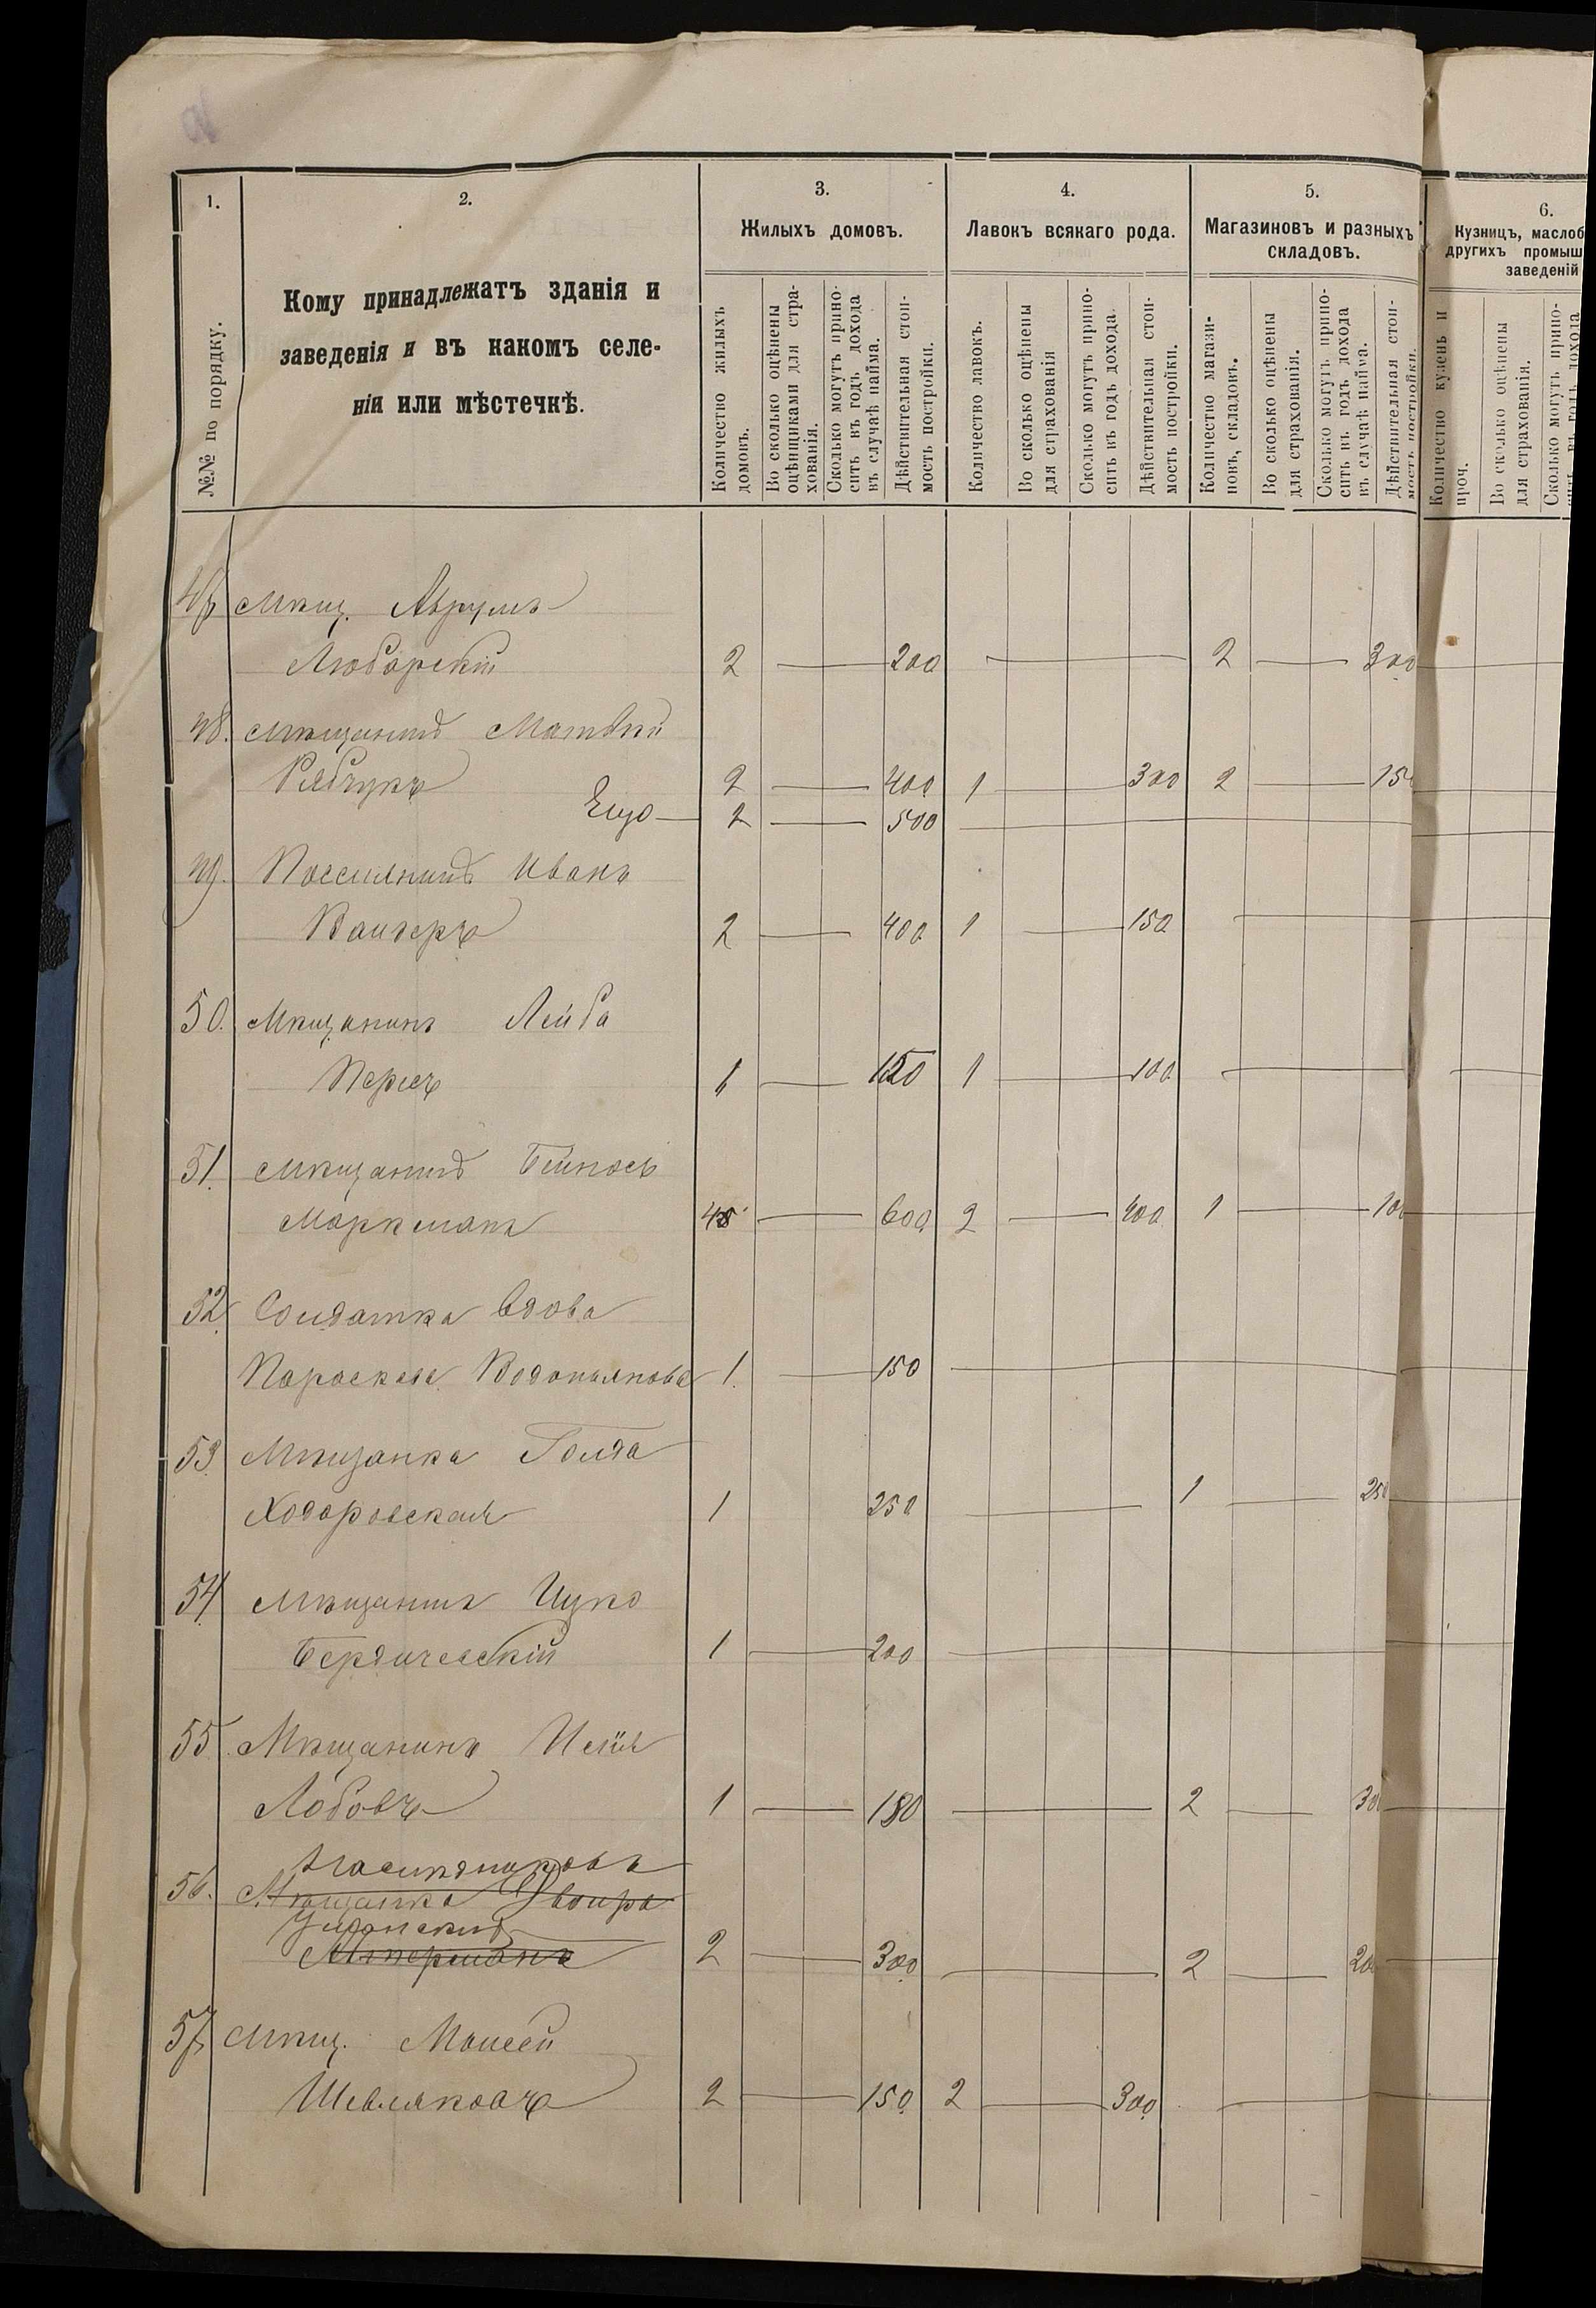 1.
2.
3.
4.
5.
6.
№№ по порядку.
Кому принадлежатъ зданія и
заведенія и въ какомъ селе-
ніи или мѣстечкѣ.
Жилыхъ домовъ.
Количество жилыхъ
домовъ.
Во сколько оцѣнены
оцѣнщиками для стра-
хованія.
Сколько могутъ прино-
сить въ годъ дохода
въ случаѣ найма.
Дѣйствительная стои-
мость постройки.
Лавокъ всякаго рода.
Количество лавокъ.
Во сколько оцѣнены
для страхованія
Сколько могутъ прино-
сить въ годъ дохода.
Дѣйствительная стои-
мость постройки.
Магазиновъ и разныхъ
складовъ.
Количество магази-
новъ, складовъ.
Во сколько оцѣнены
для страхованія.
Сколько могутъ прино-
сить въ годъ дохода
въ случаѣ найма.
Дѣйствительная стои-
мость постройки.
Кузницъ, маслоб
другихъ промыш
заведеній
Количество кузень и
проч.
Во сколько оцѣнены
для страхованія.
Сколько могутъ прино-
сить въ годъ дохода
47 Мѣщ. Аврумъ
Любарскій 2 200 2 300
48. Мѣщанинъ Матвѣй
Рябчукъ 2 400 1 300 2 15
Ещо 2 500
49. Поселянинъ Иванъ
2 400 1 150
50. Мѣщанинъ Лейба
Персъ 1 150 1 100
51. Мѣщанинъ Бейносъ
Маркманъ 600 2 400 1 100
52. Солдатка вдова
Параскева Водопьянова 1. 150
53. Мѣщанка Голда
Ходоровская 1 250 1 250
54. Мѣщанинъ Ицко
Бердичевскій 1 200
55. Мѣщанинъ Исая
Лобовъ 1 180 2 300
Наслѣдниковъ
56. Мѣщанка Двойра
Уманскій
Акерманъ 2 300 2 200
57 Мѣщ. Моисей
Шевляковъ 2 150 2 300